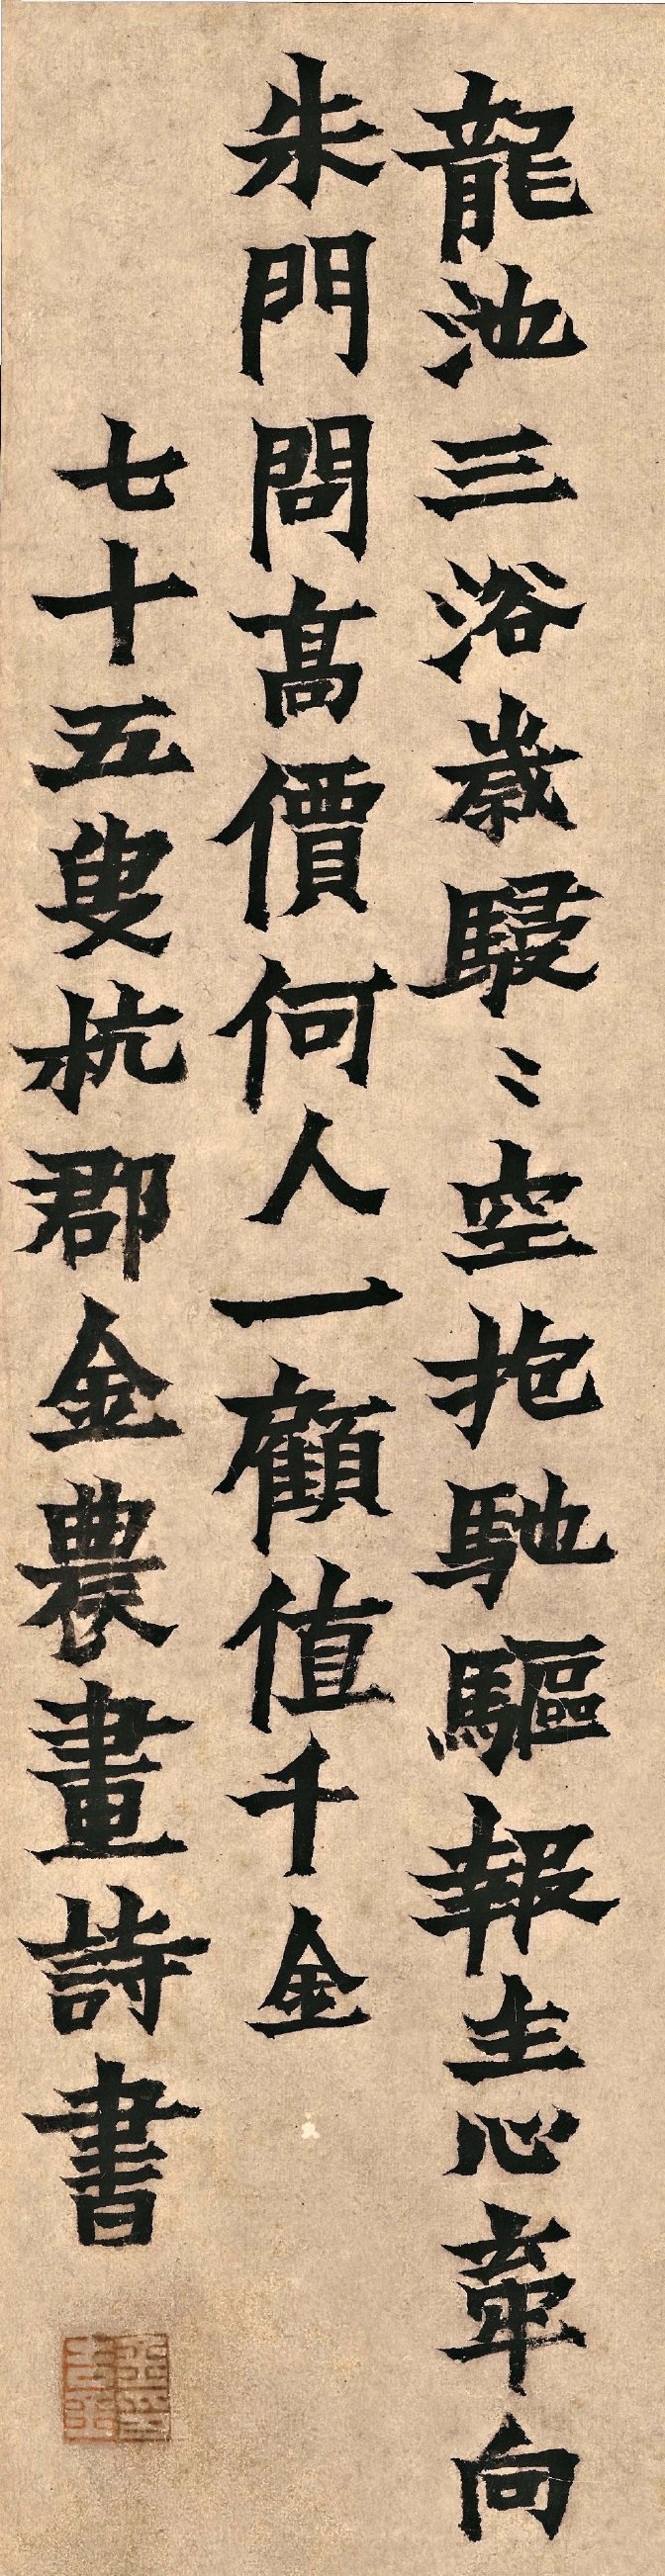 龍池三浴歲駸〻空抱馳驅報主心牽向
朱門問高價何人一顧值千金
七十五叟杭郡金農畫詩書